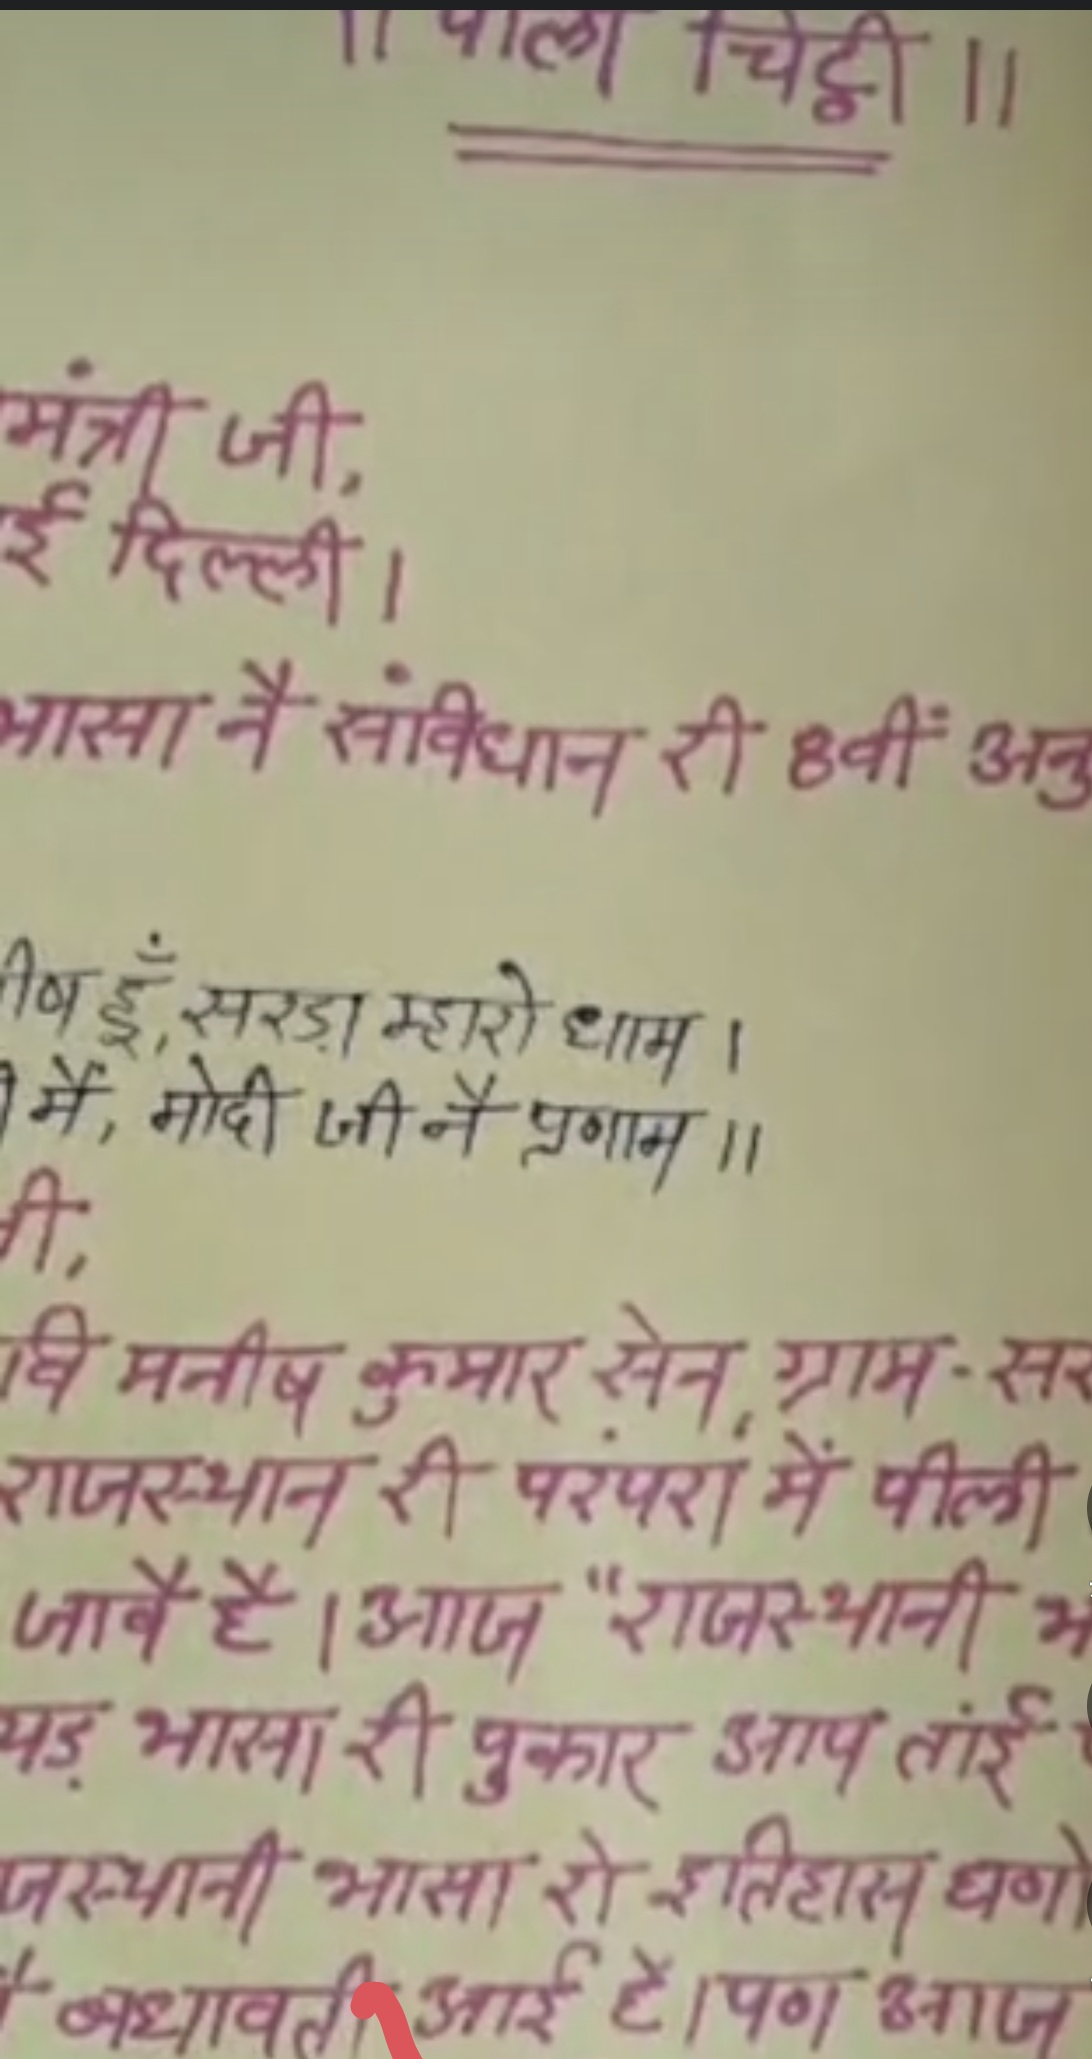 ॥ पीली चिट्ठी ॥
मंत्री जी,
ई दिल्ली ।
भासा नै संविधान री 8वीं अनु
ीष हूँ, सरड़ा म्हारो धाम ।
में, मोदी जी नै प्रणाम ॥
ी,
वि मनीष कुमार सेन, ग्राम - सर
राजस्थान री परंपरा में पीली
जावै है । आज "राजस्थानी भ
यड़ भासा री पुकार आप तांई
जस्थानी भासा रो इतिहास घणो
बधावती आई है । पण आज